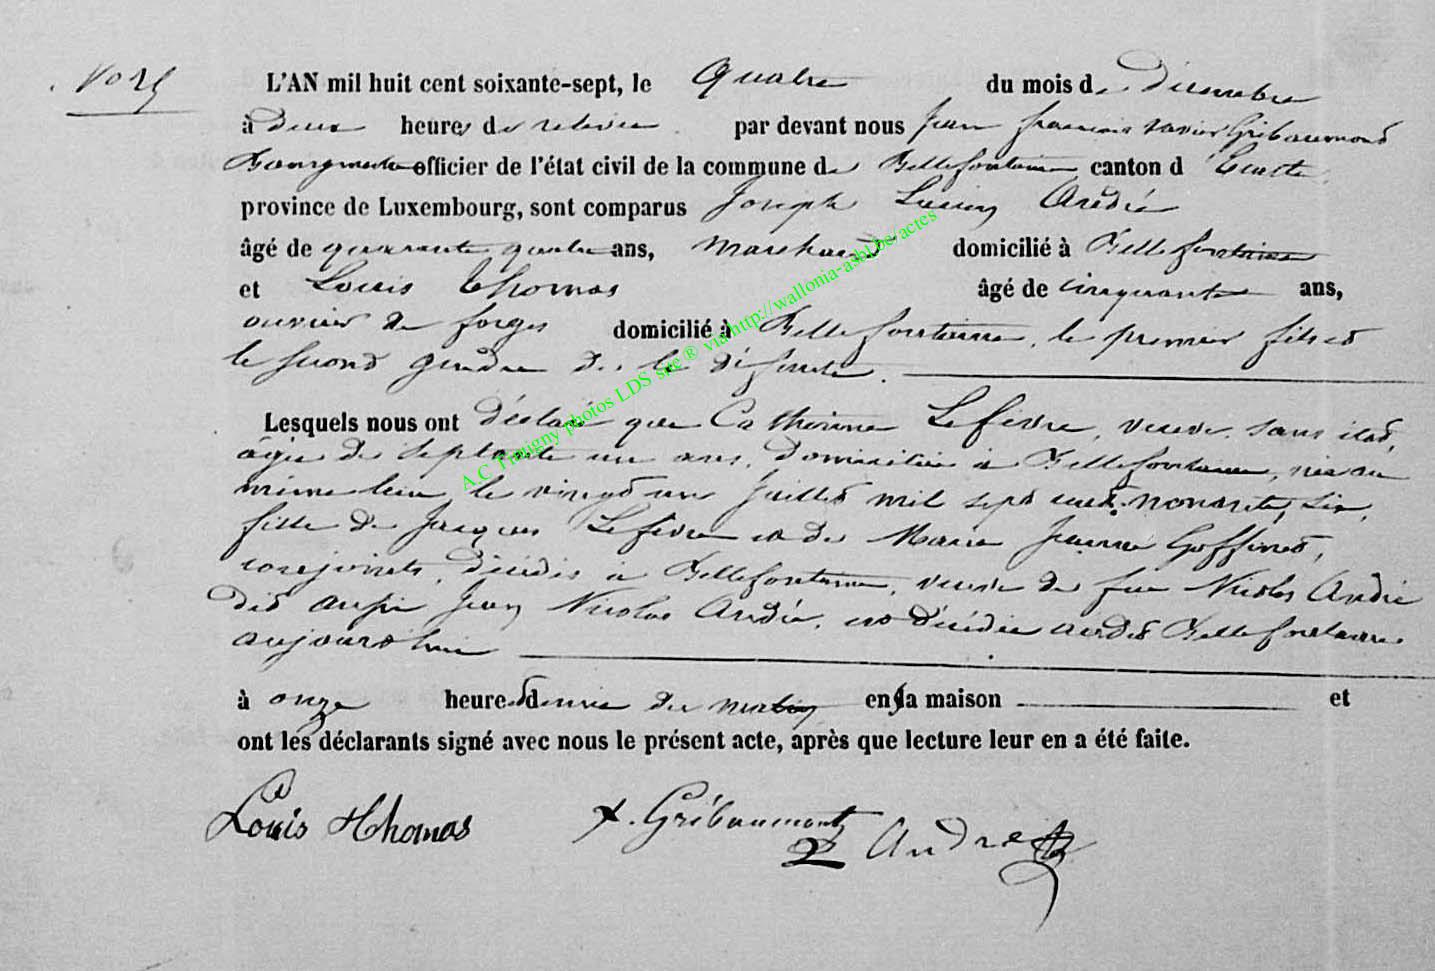 L'AN mil huit cent soixante-sept, le Quatre du mois de Décembre
à deux heures de relevée par devant nous Jean françois Xavier Gribaumont
Bourgmestre officier de l'état civil de la commune de Bellefontaine canton d'
province de Luxembourg, sont comparus Joseph Lucien André
âgé de quarante quatre ans, Marchand domicilié à Bellefontaine
et Louis Thomas âgé de cinquante ans,
ouvrier de forges domicilié à Bellefontaine, le premier fils et
le second gendre de la défunte.
Lesquels nous ont déclaré que Catherine Lefèvre, veuve, sans état,
âgée de septante un ans, domiciliée à Bellefontaine, née au
même lieu le vingt un Juillet mil sept cent nonante six,
fille de Jacques Lefèvre et de Marie Jeanne Goffinet,
conjoints, décédés à Bellefontaine, veuve de feu Nicolas André
dit aussi Jean Nicolas André, est décédée audit Bellefontaine
aujourd'hui
à onze heures demie du matin en sa maison et
ont les déclarants signé avec nous le présent acte, après que lecture leur en a été faite.
Louis Thomas X. Gribaumont André
2
A.C. Tintigny photos LDS site ® via http://wallonia-asbl.be/actes